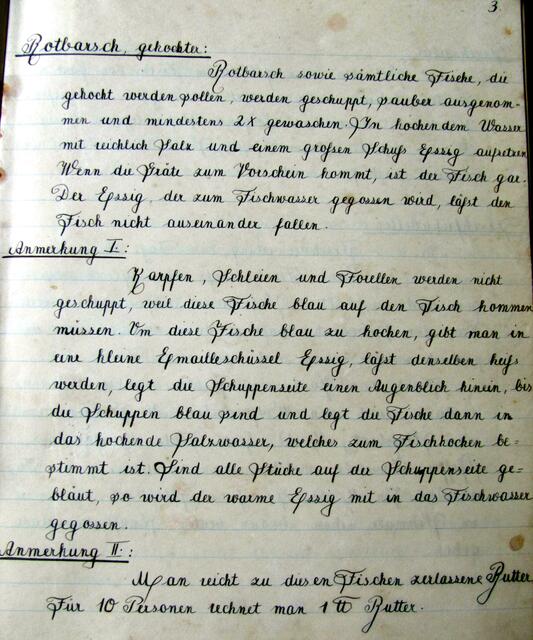 3.
Rotbarsch, gekochter:
Rotbarsch sowie sämtliche Fische, die
gekocht werden sollen, werden geschuppt, sauber ausgenom-
men und mindestens 2x gewaschen. In kochendem Wasser
mit reichlich Salz und einem großen Schuß Essig aufsetzen
Wenn die Gräte zum Vorschein kommt, ist der Fisch gar.
Der Essig, der zum Fischwasser gegossen wird, läßt den
Fisch nicht auseinander fallen.
Anmerkung I.:
Karpfen, Schleien und Forellen werden nicht
geschuppt, weil diese Fische blau auf den Tisch kommen
müssen. Um diese Fische blau zu kochen, gibt man in
eine kleine Emailleschüssel Essig, läßt denselben heiß
werden, legt die Schuppenseite einen Augenblick hinein, bis
die Schuppen blau sind und legt die Fische dann in
das kochende Salzwasser, welches zum Fischkochen be=
stimmt ist. Sind alle Stücke auf der Schuppenseite ge=
bläut, so wird der warme Essig mit in das Fischwasser
gegossen.
Anmerkung II.:
Man reicht zu diesen Fischen zerlassene Butter
Für 10 Personen rechnet man 1 ℔ Butter.